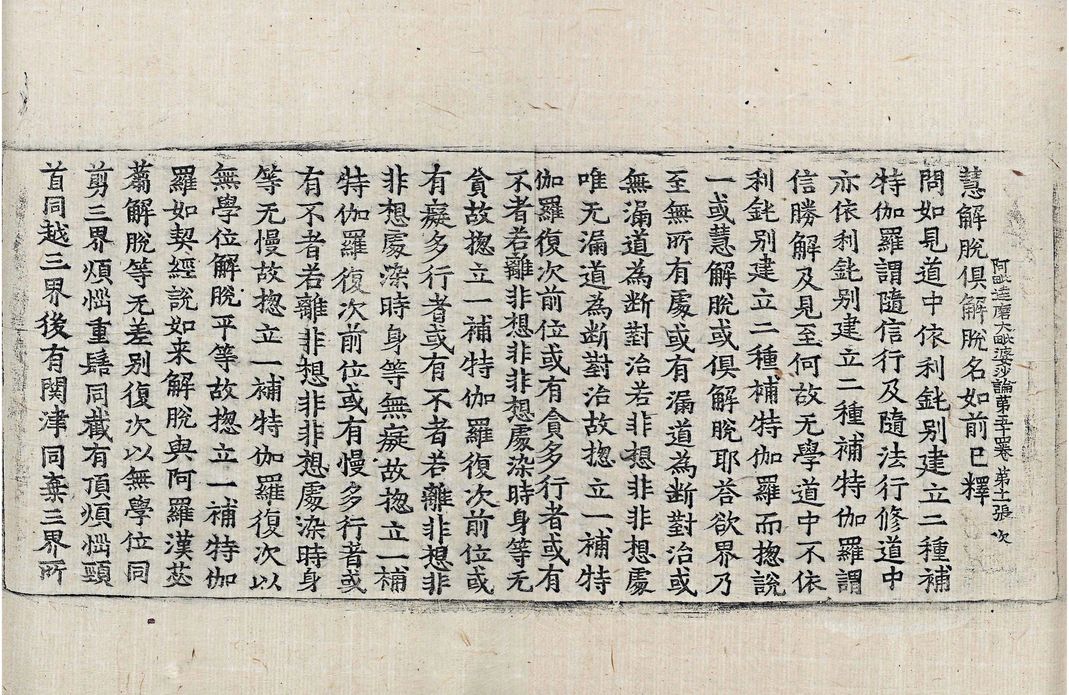 阿毗達磨大毗婆沙論第五十四卷 第十一張 次
慧解脫俱解脫名如前已釋
問如見道中依利鈍別建立二種補
特伽羅謂隨信行及隨法行修道中
亦依利鈍別建立二種補特伽羅謂
信勝解及見至何故无學道中不依
利鈍别建立二種補特伽羅而揔說
一或慧解脫或俱解脫耶荅欲界乃
至無所有處或有漏道為斷對治或
無漏道為斷對治若非想非非想處
唯无漏道為斷對治故揔立一補特
伽羅復次前位或有貪多行者或有
不者若離非想非非想處染時身等无
貪故揔立一補特伽羅復次前位或
有癡多行者或有不者若離非想非
非想處染時身等無癡故揔立一補
特伽羅復次前位或有慢多行者或
有不者若離非想非非想處染時身
等无慢故揔立一補特伽羅復次以
無學位解脫平等故揔立一補特伽
羅如契經說如来解脫與阿羅漢苾
蒭解脫等无差别復次以無學位同
剪三界煩惱重鬚同截有頂煩惱頸
首同越三界後有関津同棄三界所